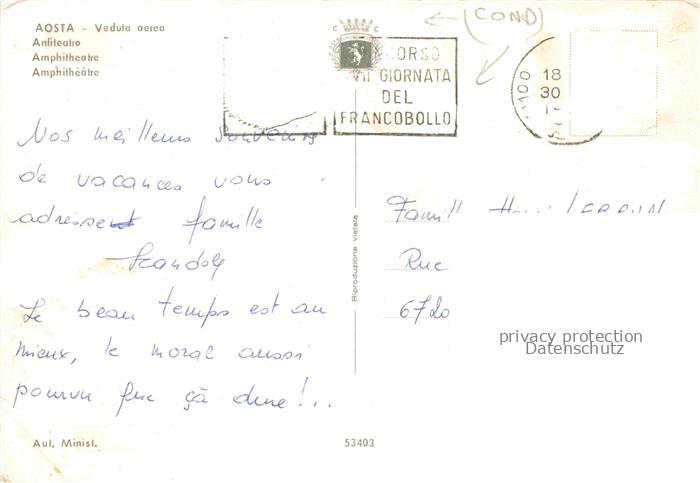 AOSTA - Veduta aerea
Anfiteatro
Amphitheatre
Amphithéâtre
(COND)
C C
CORSO
VII GIORNATA
DEL
FRANCOBOLLO
18
30
Nos meilleurs souvenirs
de vacances vous
adressent famille
Le beau temps est au
mieux, le moral aussi
pourvu que çà dure!...
Riproduzione vietata
Famill
Rue
6720
privacy protection
Datenschutz
Aut. Minist.
53403